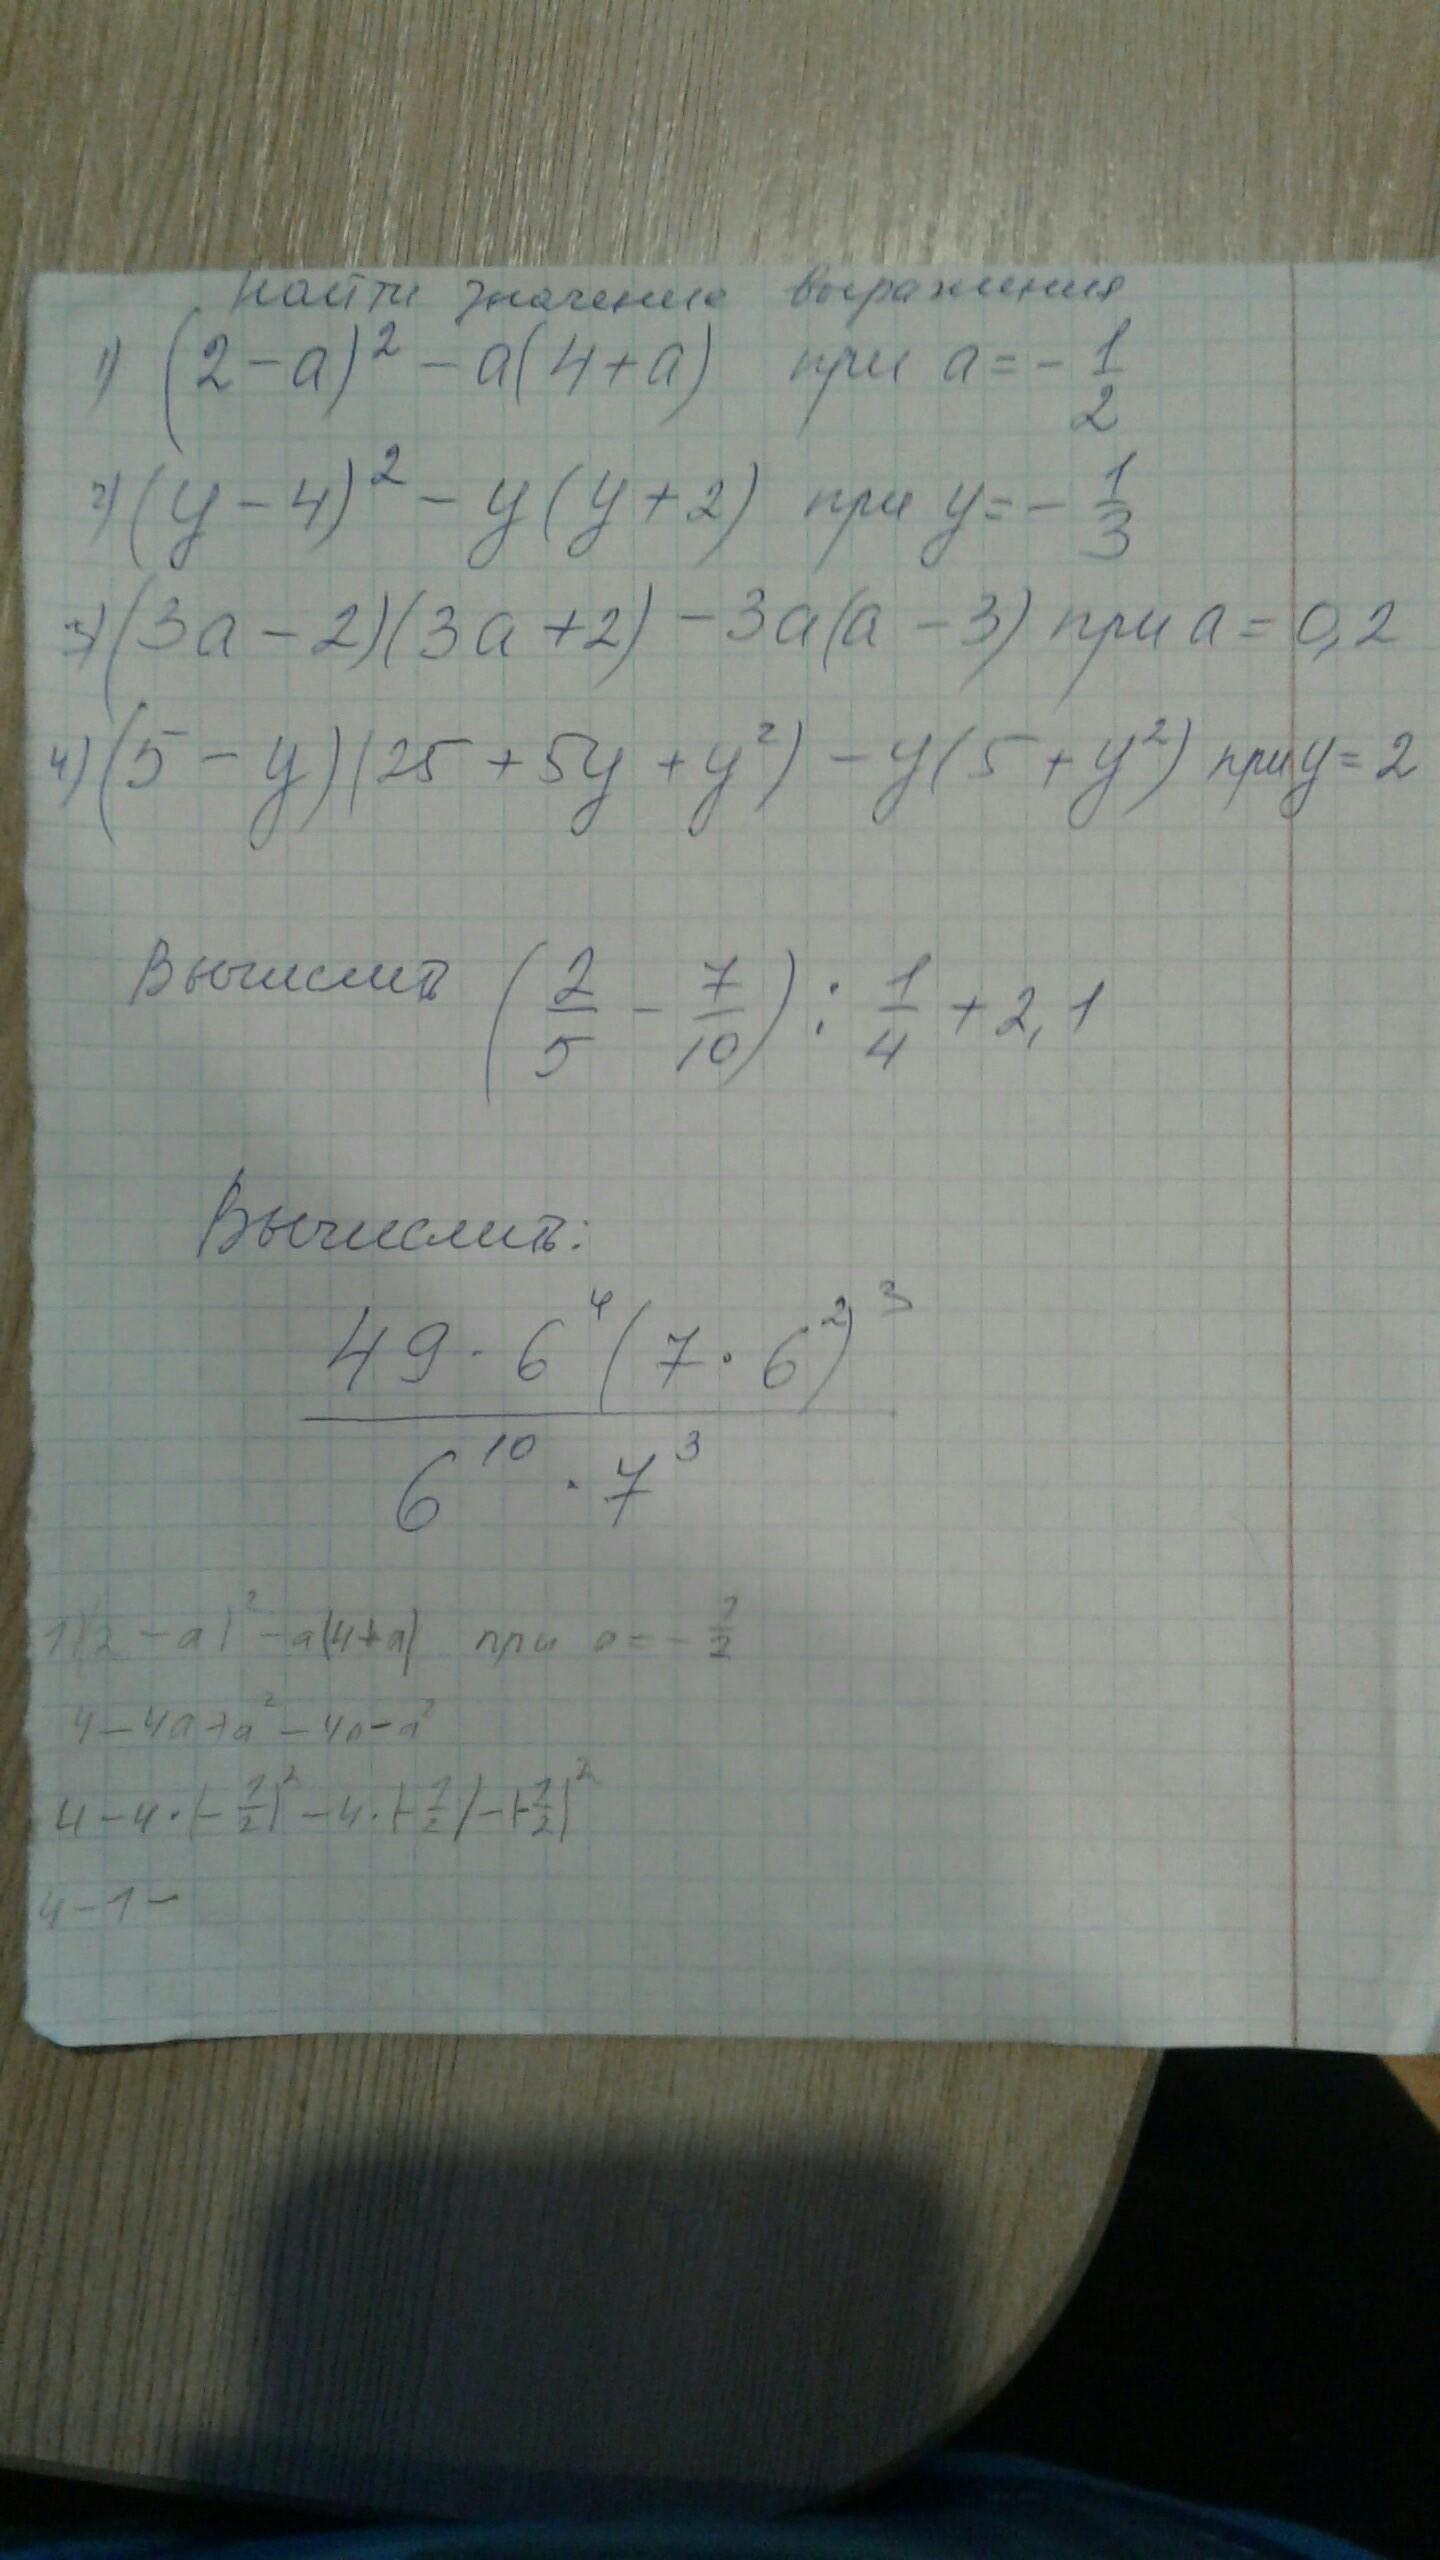 Найти значение выражения
1) (2 - a)² - a(4 + a) при a = - 1/2
2) (y - 4)² - y(y + 2) при y = - 1/3
3) (3a - 2)(3a + 2) - 3a(a - 3) при a = 0,2
4) (5 - y)(25 + 5y + y²) - y(5 + y²) при y = 2
Вычислить (2/5 - 7/10) : 1/4 + 2,1
Вычислить:
49 · 6⁴ (7 · 6²)³
6¹⁰ · 7³
1) (2 - a)² - a(4 + a) при a = - 1/2
4 - 4a + a² - 4a - a²
4 - 4 · (- 1/2)² - 4 · (- 1/2) - (- 1/2)²
4 - 1 -